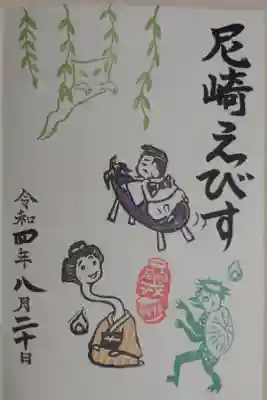 尼崎えびす
令和四年八月二十日